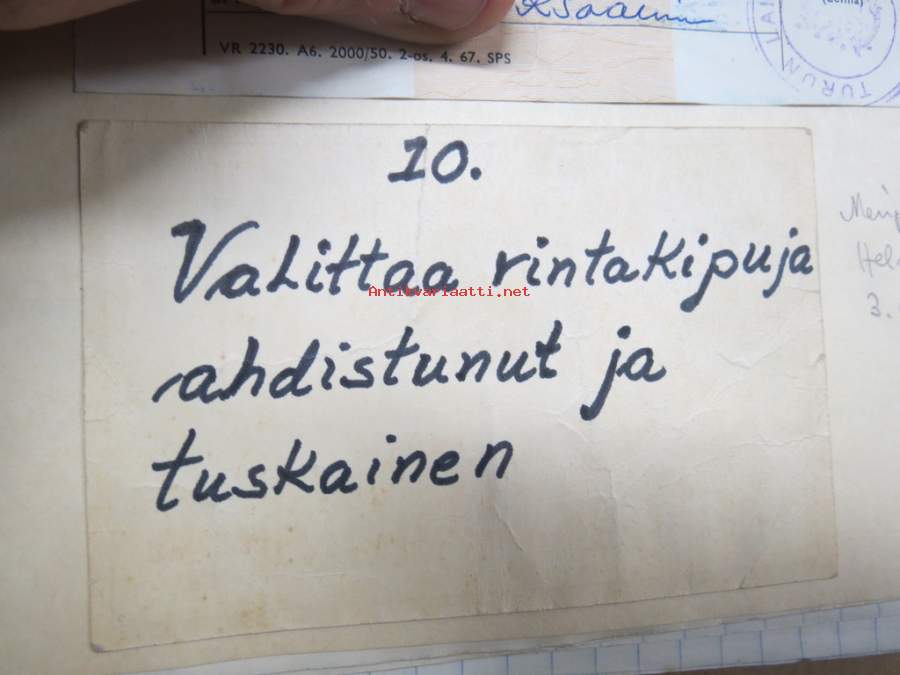 VR 2230. A6. 2000/50. 2-os. 4. 67. SPS
TURUN
10.
Valittaa rintakipuja
Antikvariaatti.net
ahdistunut ja
tuskainen
3.